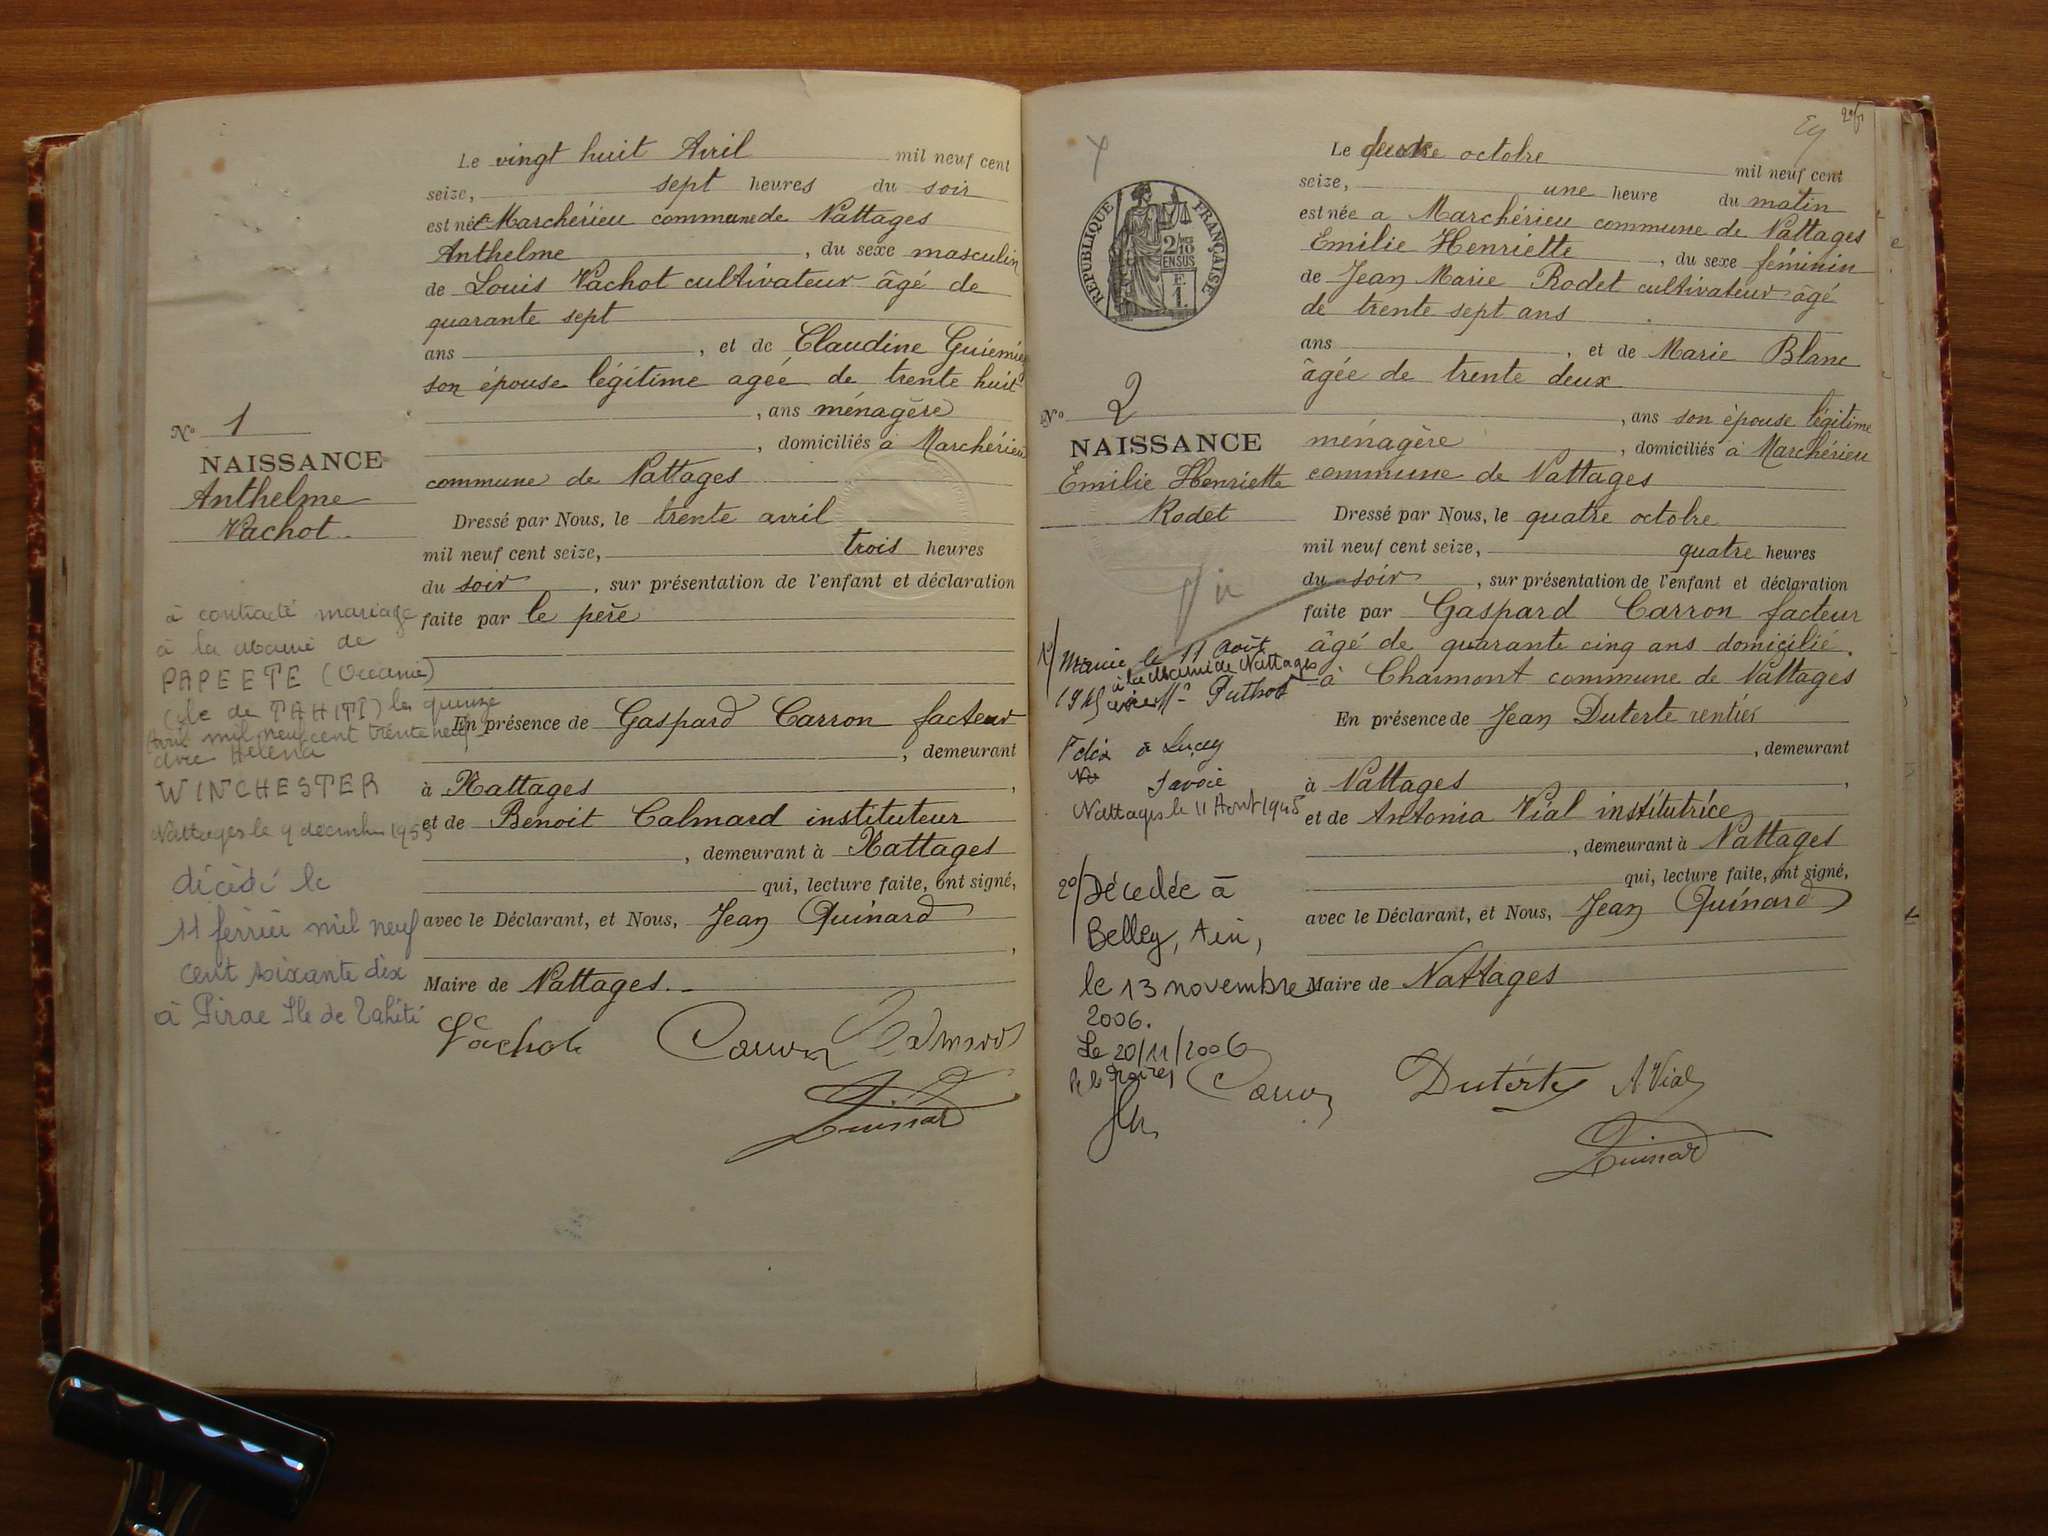 Le vingt huit Avril mil neuf cent
seize, sept heures du soir
est né à Marchérieu commune de Nattages
Anthelme, du sexe masculin
de Louis Vachot cultivateur âgé de
quarante sept
ans, et de Claudine
son épouse légitime agée de trente huit
, ans ménagère
, domiciliés à Marchérieu
commune de Nattages
Dressé par Nous, le trente avril
mil neuf cent seize, trois heures
du soir, sur présentation de l'enfant et déclaration
faite par le père
En présence de Gaspard Carron facteur
, demeurant
à Nattages,
et de Benoit Calmard instituteur
, demeurant à Nattages
qui, lecture faite, ont signé,
avec le Déclarant, et Nous, Jean Quinard
,
Maire de Nattages.
Vachot Carron Calmard
Quinard
No 1
NAISSANCE
Anthelme
Vachot
à contracté mariage
à la mairie de
PAPEETE (Océanie)
(île de TAHITI) le quinze
mil neuf cent trente neuf
avec Héléna
WINCHESTER
Nattages le 9 décembre 1955
décédé le
11 février mil neuf
cent soixante dix
à Pirae Ile de Tahiti
Le octobre mil neuf cent
seize, une heure du matin
est née a Marchérieu commune de Nattages
Emilie Henriette, du sexe féminin
de Jean Marie Rodet cultivateur âgé
de trente sept ans
ans, et de Marie Blanc
âgée de trente deux
, ans son épouse légitime
ménagère, domiciliés à Marchérieu
commune de Nattages
Dressé par Nous, le quatre octobre
mil neuf cent seize, quatre heures
du soir, sur présentation de l'enfant et déclaration
faite par Gaspard Carron facteur
âgé de quarante cinq ans domicilié
à Charmont commune de Nattages
En présence de Jean Duterte rentier
, demeurant
à Nattages,
et de Antonia Vial institutrice
, demeurant à Nattages
qui, lecture faite, ont signé,
avec le Déclarant, et Nous, Jean Quinard
Maire de Nattages
Carron Duterte A Vial
Quinard
RÉPUBLIQUE FRANÇAISE
2/10 EN SUS
F.
1.
No 2
NAISSANCE
Emilie Henriette
Rodet
1º/ Mariée le 11 août
à la Mairie de Nattages
1945 avec Mr Puthod
Félix à Lucey
Savoie
Nattages le 11 Aout 1945
2º/ Décédée à
Belley, Ain,
le 13 novembre
2006.
Le 20/11/2006